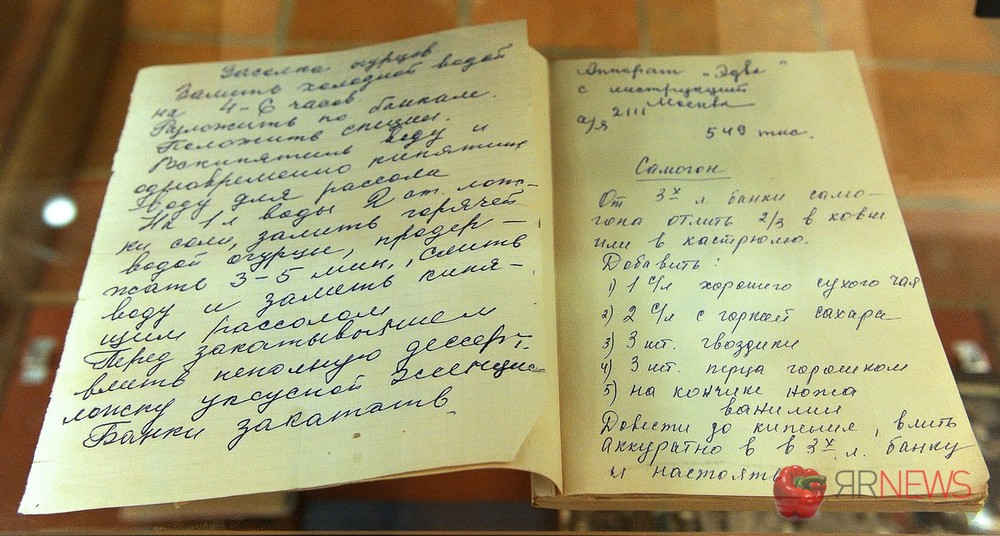 Засолка огурцов
Залить холодной водой
на 4-6 часов.
Разложить по банкам.
Положить специи.
Вскипятить воду и
одновременно кипятить
воду для рассола
На 1л воды 2 ст. лож-
ки соли, залить горячей
водой огурцы, продер-
жать 3-5 мин., слить
воду и залить кипя-
щим рассолом
Перед закатыванием
влить неполную дессерт.
ложку уксусной эссенции
Банки закатать.
Аппарат „Эдва"
с инструкцией
2111 Москва
а/я
549 тыс.
Самогон
От 3х л. банки само-
гона отлить 2/3 в ковш
или в кастрюлю.
Добавить:
1) 1 с/л хорошего сухого чая
2) 2 с/л с горкой сахара
3) 3 шт. гвоздики
4) 3 шт. перца горошком
5) на кончике ножа
ванилин
Довести до кипения, влить
аккуратно в в 3х л. банку
и настоять
ЯRNEWS